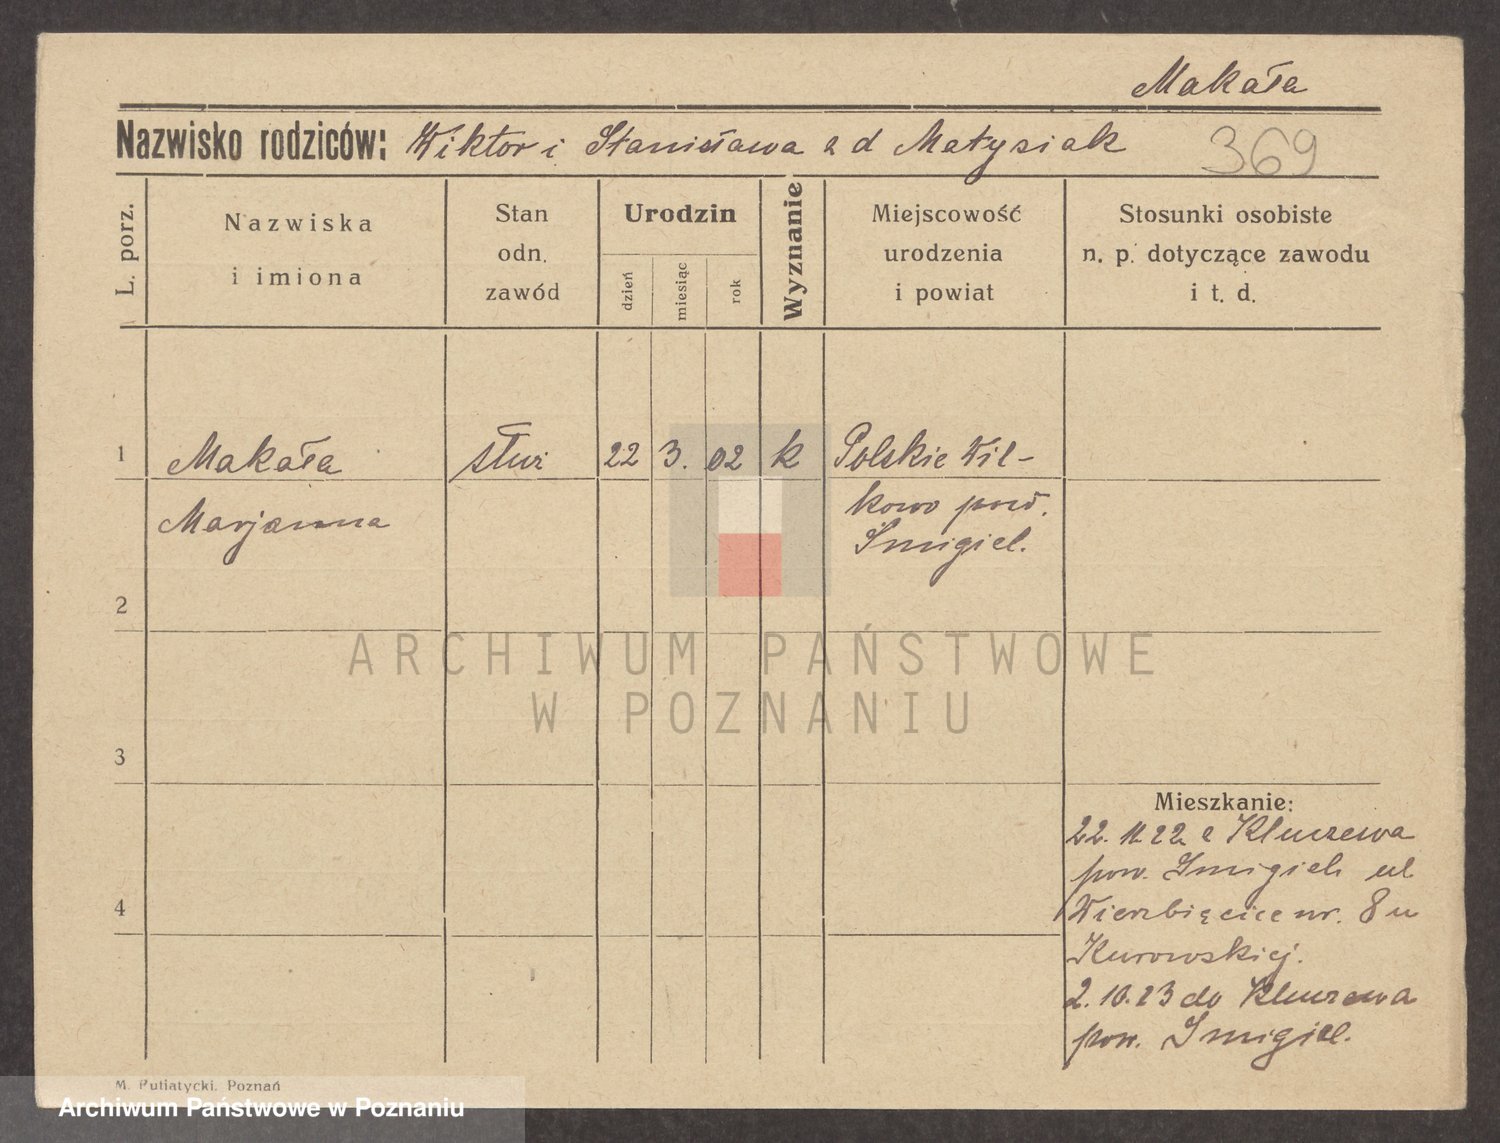 Makała
Nazwisko rodziców: Wiktor i Stanisława z d Matysiak 369
L. porz.
Nazwiska
i imiona
Stan
odn.
zawód
Urodzin
dzień
miesiąc
rok
Wyznanie
Miejscowość
urodzenia
i powiat
Stosunki osobiste
n. p. dotyczące zawodu
i t. d.
1 Makała służ 22 3. 02 k Polskie Wil-
Marjanna kowo pow.
Śmigiel.
2
ARCHIWUM PAŃSTWOWE
W POZNANIU
3
Mieszkanie:
22. 11. 22 z Kluczewa
pow. Śmigiel ul
4 Wierzbięcice nr. 8 u
Kurowskiej.
2. 10. 23 do Kluczewa
pow. Śmigiel.
M. Putiatycki, Poznań
Archiwum Państwowe w Poznaniu